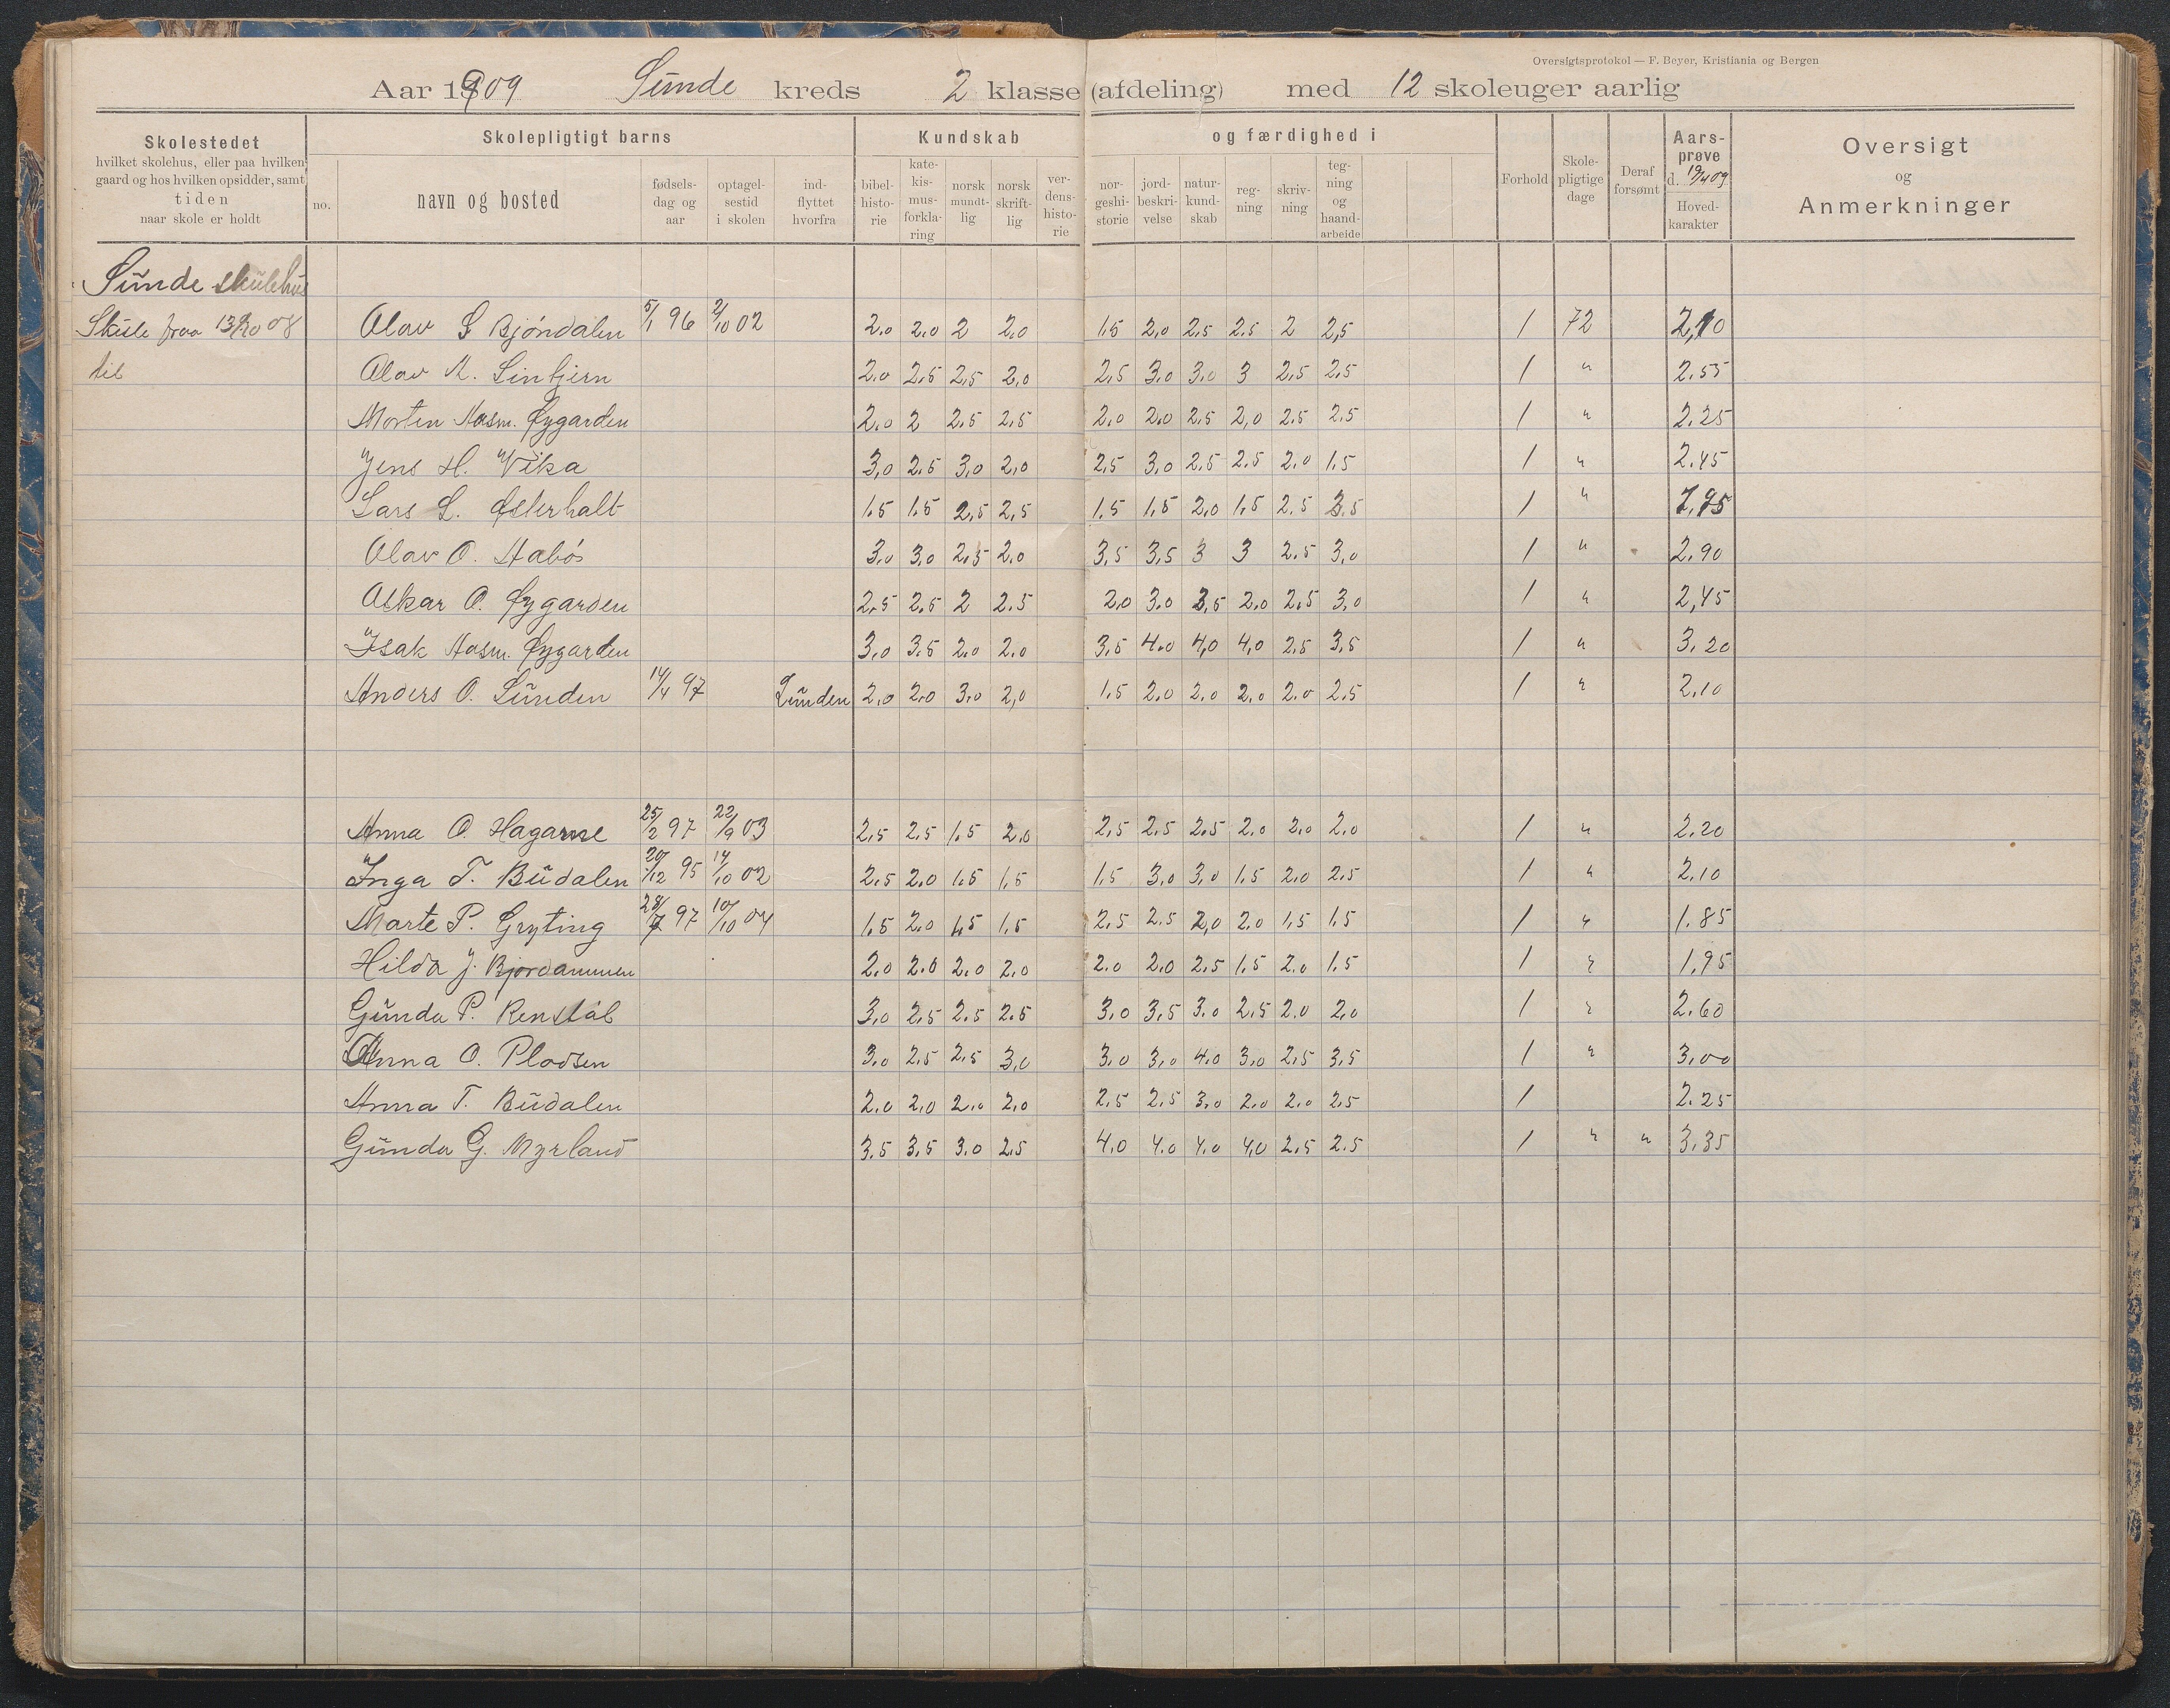 Oversigtsprotokol — F. Beyer, Kristiania og Bergen
Aar 1909 Sunde kreds 2 klasse (afdeling) med 12 skoleuger aarlig
Skolestedet hvilket skolehus, eller paa hvilken gaard og hos hvilken opsidder, samt tiden naar skole er holdt
Skolepligtigt barns
no. navn og bosted fødsels-dag og aar optagel-sestid i skolen ind-flyttet hvorfra
Kundskab og færdighed i
bibel-histo-rie kate-kis-mus-forkla-ring norsk mundt-lig norsk skrift-lig ver-dens-histo-rie nor-geshi-storie jord-beskri-velse natur-kund-skab reg-ning skriv-ning teg-ning og haand-arbeide
Forhold Skole-pligtige dage Deraf forsømt Aars-prøve d. 19/4 09 Hoved-karakter
Oversigt og Anmerkninger
Sunde skulehus
Skule fraa 13/10 08 Olav S Bjöndalen 5/1 96 2/10 02 2.0 2.0 2 2.0 1.5 2.0 2.5 2.5 2 2,5 1 72 2,10
til Olav M. Lintjern 2.0 2.5 2.5 2.0 2.5 3.0 3.0 3 2.5 2.5 1 " 2.55
Morten Aasm. Øygarden 2.0 2 2.5 2.5 2.0 2.0 2.5 2,0 2.5 2.5 1 " 2.25
Jens H. Vika 3,0 2.5 3,0 2,0 2,5 3,0 2,5 2,5 2.0 1.5 1 " 2.45
Lars L. Østerholt 1.5 1.5 2,5 2,5 1.5 1,5 2,0 1,5 2.5 3.5 1 "
Olav O. Habös 3.0 3.0 2.5 2.0 3,5 3,5 3 3 2.5 3,0 1 " 2.90
Askar O. Øygarden 2.5 2.5 2 2.5 2.0 3.0 3,5 2.0 2.5 3,0 1 " 2,45
Isak Aasm. Øygarden 3.0 3.5 2.0 2.0 3,5 4.0 4,0 4,0 2.5 3,5 1 " 3.20
Anders O. Lunden 14/4 97 Lunden 2.0 2.0 3,0 2,0 1.5 2.0 2.0 2.0 2.0 2.5 1 " 2,10
Anna O. Hagane 25/2 97 22/9 03 2,5 2,5 1.5 2.0 2,5 2.5 2.5 2.0 2.0 2.0 1 " 2.20
Inga T. Budalen 20/12 95 14/10 02 2.5 2.0 1.5 1,5 1.5 3,0 3,0 1.5 2.0 2.5 1 " 2.10
Marte P. Gryting 28/7 97 10/10 04 1.5 2.0 1.5 1.5 2.5 2.5 2,0 2.0 1,5 1.5 1 " 1.85
Hilda J. Bjordammen 2.0 2.0 2.0 2.0 2.0 2.0 2.5 1.5 2.0 1.5 1 " 1,95
Gunda P. Renstöl 3.0 2.5 2.5 2.5 3.0 3,5 3.0 2.5 2.0 2.0 1 " 2.60
Anna O. Plassen 3.0 2.5 2.5 3,0 3.0 3,0 4.0 3,0 2.5 3,5 1 " 3,00
Anna T. Budalen 2.0 2,0 2.0 2.0 2.5 2.5 3,0 2.0 2.0 2.5 1 2.25
Gunda G. Myrland 3.5 3,5 3.0 2.5 4.0 4.0 4.0 4,0 2.5 2.5 1 " " 3,35